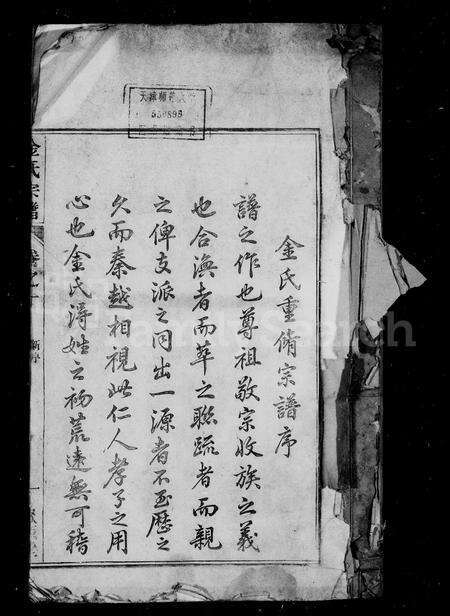 金氏重脩宗譜序
譜之作也尊祖敬宗收族之義
也合渙者而萃之聯疏者而親
之俾支派之同出一源者不至歷之
久而秦越相視此仁人孝子之用
心也金氏淂姓之初荒遠無可稽
金氏宗譜
卷之一
新序
一
天津師範大
550893
FamilySearch